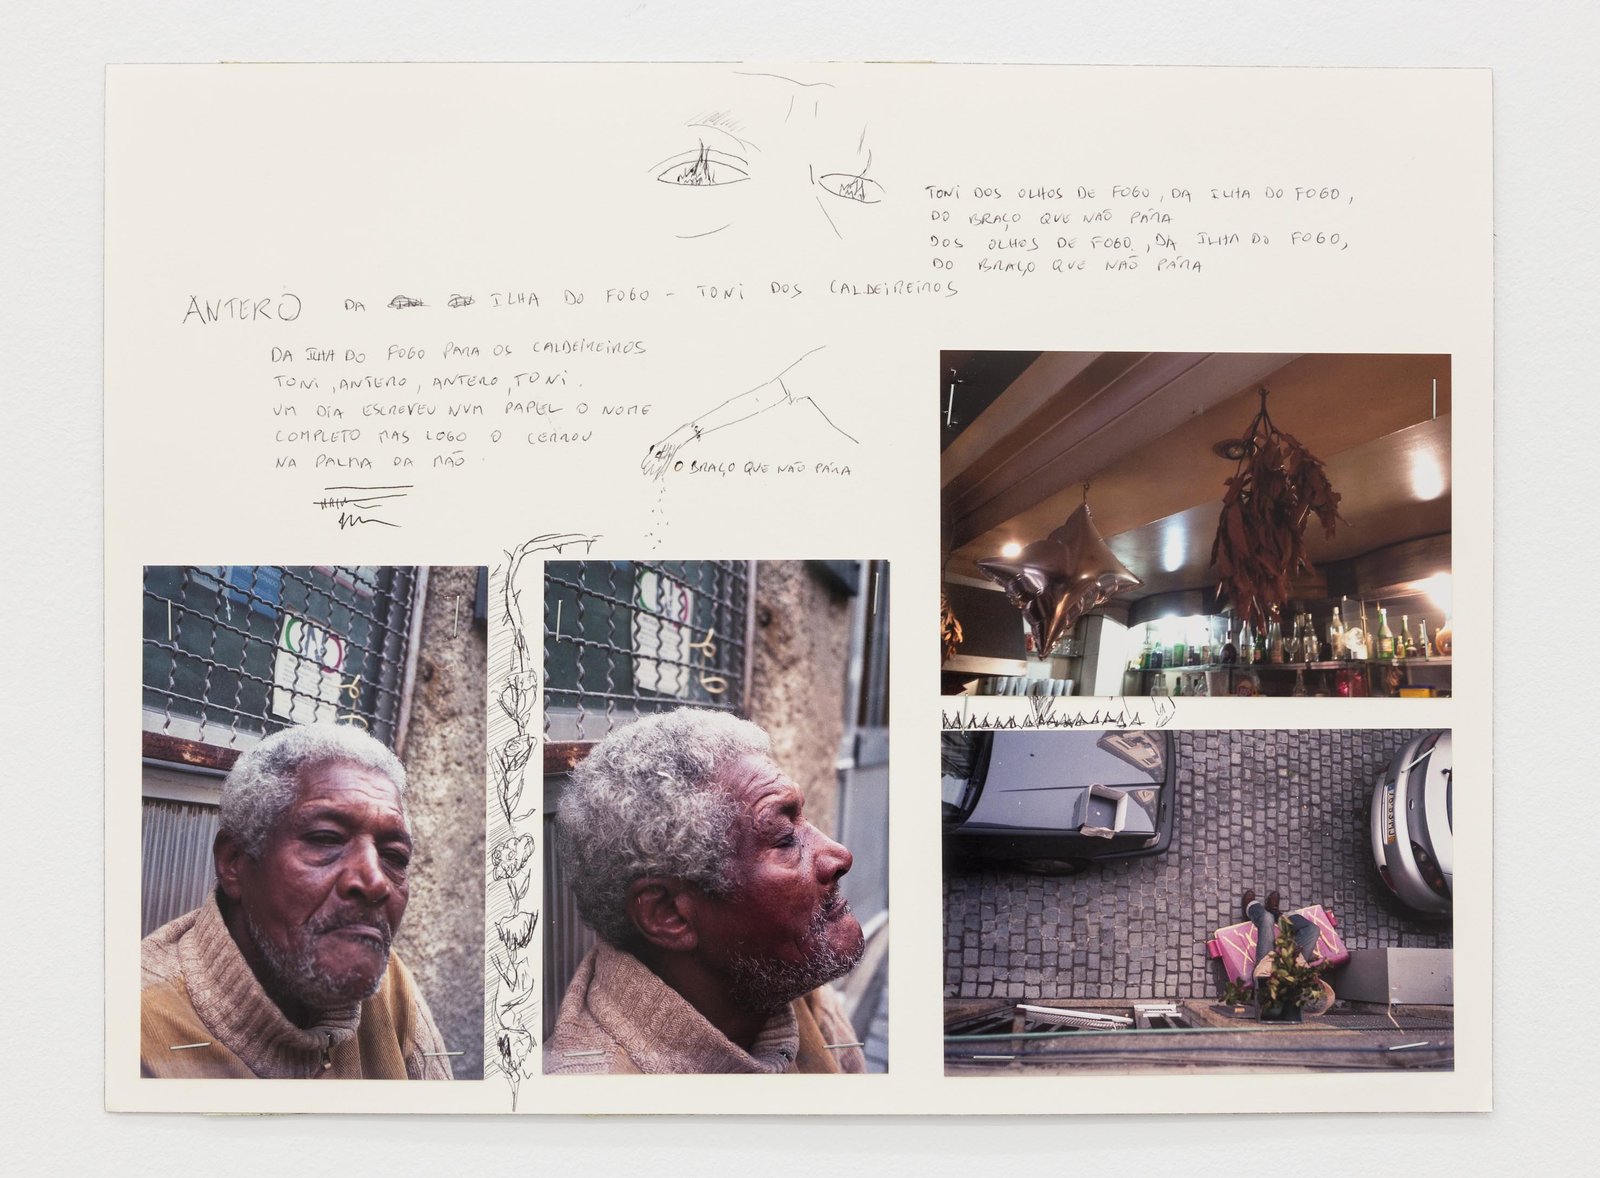 TONI DOS OLHOS DE FOGO, DA ILHA DO FOGO,
DO BRAÇO QUE NÃO PÁRA
DOS OLHOS DE FOGO, DA ILHA DO FOGO,
DO BRAÇO QUE NÃO PÁRA
ANTERO DA ILHA DO FOGO - TONI DOS CALDEIREIROS
DA ILHA DO FOGO PARA OS CALDEIREIROS
TONI, ANTERO, ANTERO, TONI.
UM DIA ESCREVEU NUM PAPEL O NOME
COMPLETO MAS LOGO O CERROU
NA PALMA DA MÃO.
O BRAÇO QUE NÃO PÁRA